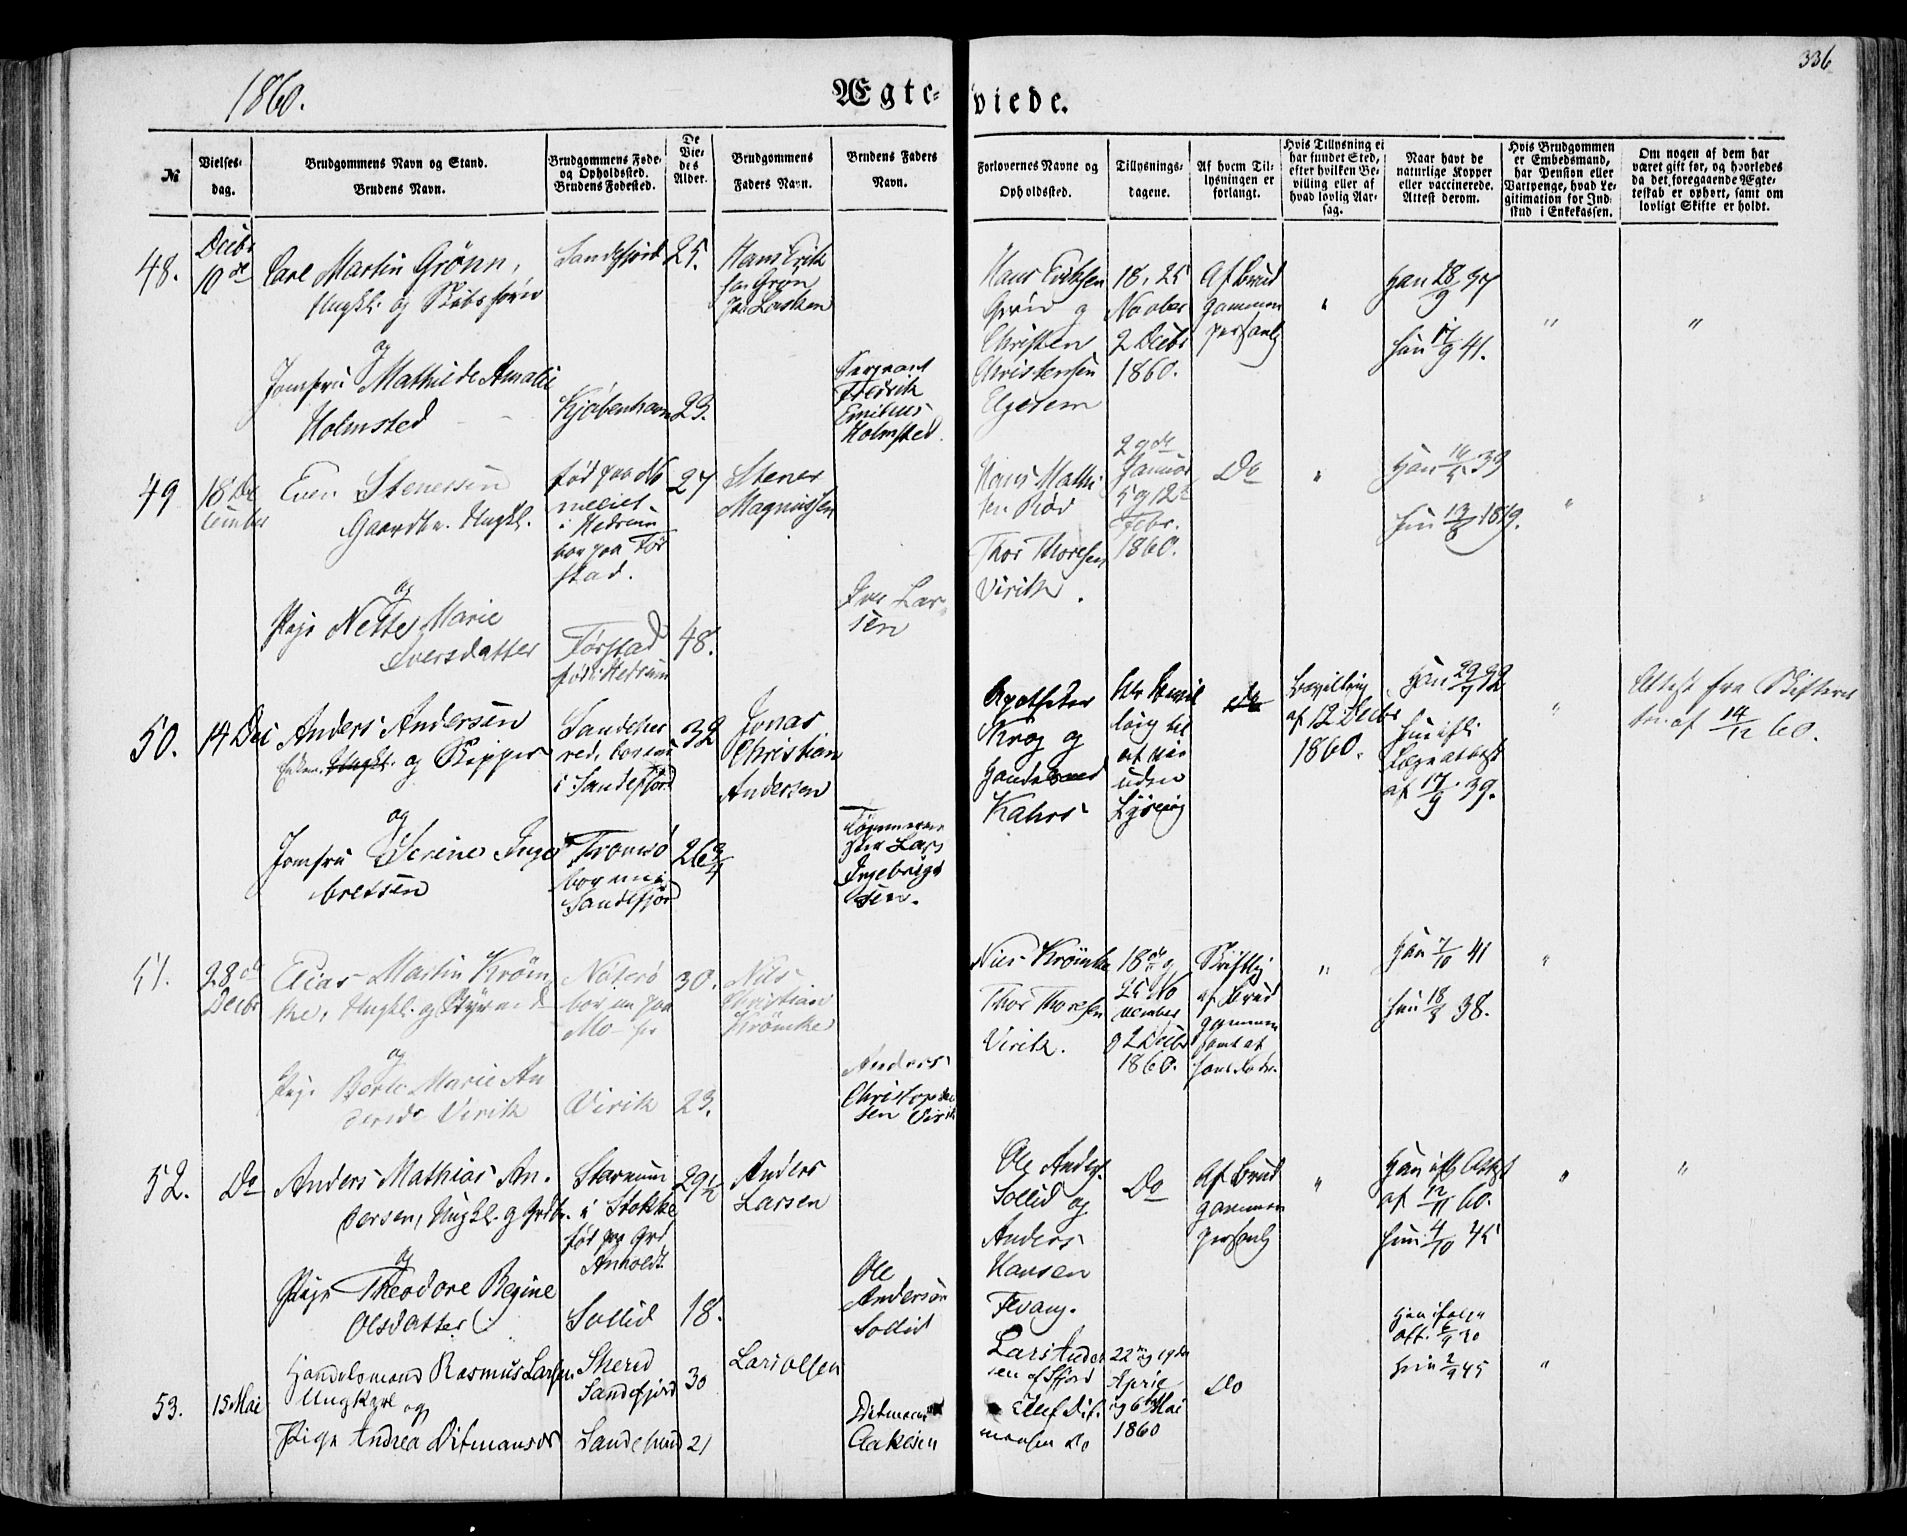 336
1860.
Ægte-
viede.
№
Vielses-
dag.
Brudgommens Navn og Stand.
Brudens Navn.
Brudgommens Føde-
og Opholdssted.
Brudens Fødested.
De
Vie-
des
Alder.
Brudgommens
Faders Navn.
Brudens Faders
Navn.
Forlovernes Navne og
Opholdssted.
Tillysnings-
dagene.
Af hvem Til-
lysningen er
forlangt.
Hvis Tillysning ei
har fundet Sted,
efter hvilken Be-
villing eller af
hvad lovlig Aar-
sag.
Naar havt de
naturlige Kopper
eller vaccinerede.
Attest derom.
Hvis Brudgommen
er Embedsmand,
har Pension eller
Vartpenge, hvad Le-
gitimation for Ind-
skud i Enkekassen.
Om nogen af dem har
været gift før, og hvorledes
da det foregaaende Ægte-
teskab er ophørt, samt om
lovligt Skifte er holdt.
48.
Decbr
10de
Carl Martin Grönn,
Ungkl. og
og
Jomfru Mathilde Amalie
Holmsted
Sandefjord
Kjöbenhavn
25.
23.
Hans Erik
sen Grøn
Sergeant
Fredrik
Emilius
Holmsted.
Hans Eriksen
Grøn og
Christen
Christensen
Elgesem
18, 25
Novbr
2 Decbr
1860.
Af Brud
gommen
personlg
"
Han 28/9 37
Hun 17/9 41.
"
"
49
18 De
cember
Even Stenersen
Gaardbr. Ungkl.
og
Pige Nette Marie
Iversdatter
født paa
i Hedrum
boe paa Før
stad.
Førstad
født i Hedrum
27
48.
Stener
Magnussen
Iver Lar
sen
Hans Mathi
sen Röd
Thor Thoresen
Virik.
29de
Januar
5 og 12te
Febr.
1860.
Do
"
Han 39
Hun 1819.
"
"
50.
14 Dec
Anders Andersen
Enkem. Ungkl. og Skipper
og
Jomfru Serine Inge
bretsen
Sandehe
red, boende
i Sandefjord
Tromsö
boende i
Sandefjord
32
26 3/4
Jonas
Christian
Andersen
Tømmerme
ster Lars
Ingebrigt
sen.
Apotheker
Krog og
Handelsmand
Kahrs
uden
Lysning
Do
Bevilling
af 12 Decbr
1860.
Han 29/7 32
Hun ifl.
Lægeattest
af 17/9 39.
"
Attest fra Skifteret
ten af 14/12 60.
51.
28de
Decbr
Elias Martin Kröm
ke, Ungkl. og Styrmand
og
Pige Berte Marie An
dersdr Virik
Nøterø
boende paa
Mo
Virik
30.
23.
Nils
Christian
Krömke
Anders
Christophe
sen Virik
Niels Krömke
Thor Thoresen
Virik.
18de og
25 No
vember
og 2 Decbr
1860.
Skriftlig
af Brud
gommen
samt af
hans Fader.
"
Han 7/10 41
Hun 18/8 38.
"
52.
Do
Anders Mathias An.
dersen, Ungkl. og Grdbr.
og
Pige Theodore Regine
Olsdatter
Starum
i Stokke
født paa Grd
Anholdt
Sollid
29 1/2
18.
Anders
Larsen
Ole
Andersen
Sollid
Ole Anders.
Sollid og
Anders
Hansen
Fevang.
Do
Af Brud
gommen
personlg
"
Han ifl. Attest
af 12/11 60.
Hun 4/10 45
"
"
53.
15 Mai
Handelsmand Rasmus Larsen
Ungkarl og
Pige Andrea Ditmansdr
Sandefjord
Sandefjord
30
21
Lars Olsen
Ditman
Aakesen
Lars Ander
sen af Sfjord
Ellef Dit.
mansen do
22 og 29de
April
og 6te Mai
1860
Do
Han ifølge
att. 6/9 30
Hun 2/9 45
"